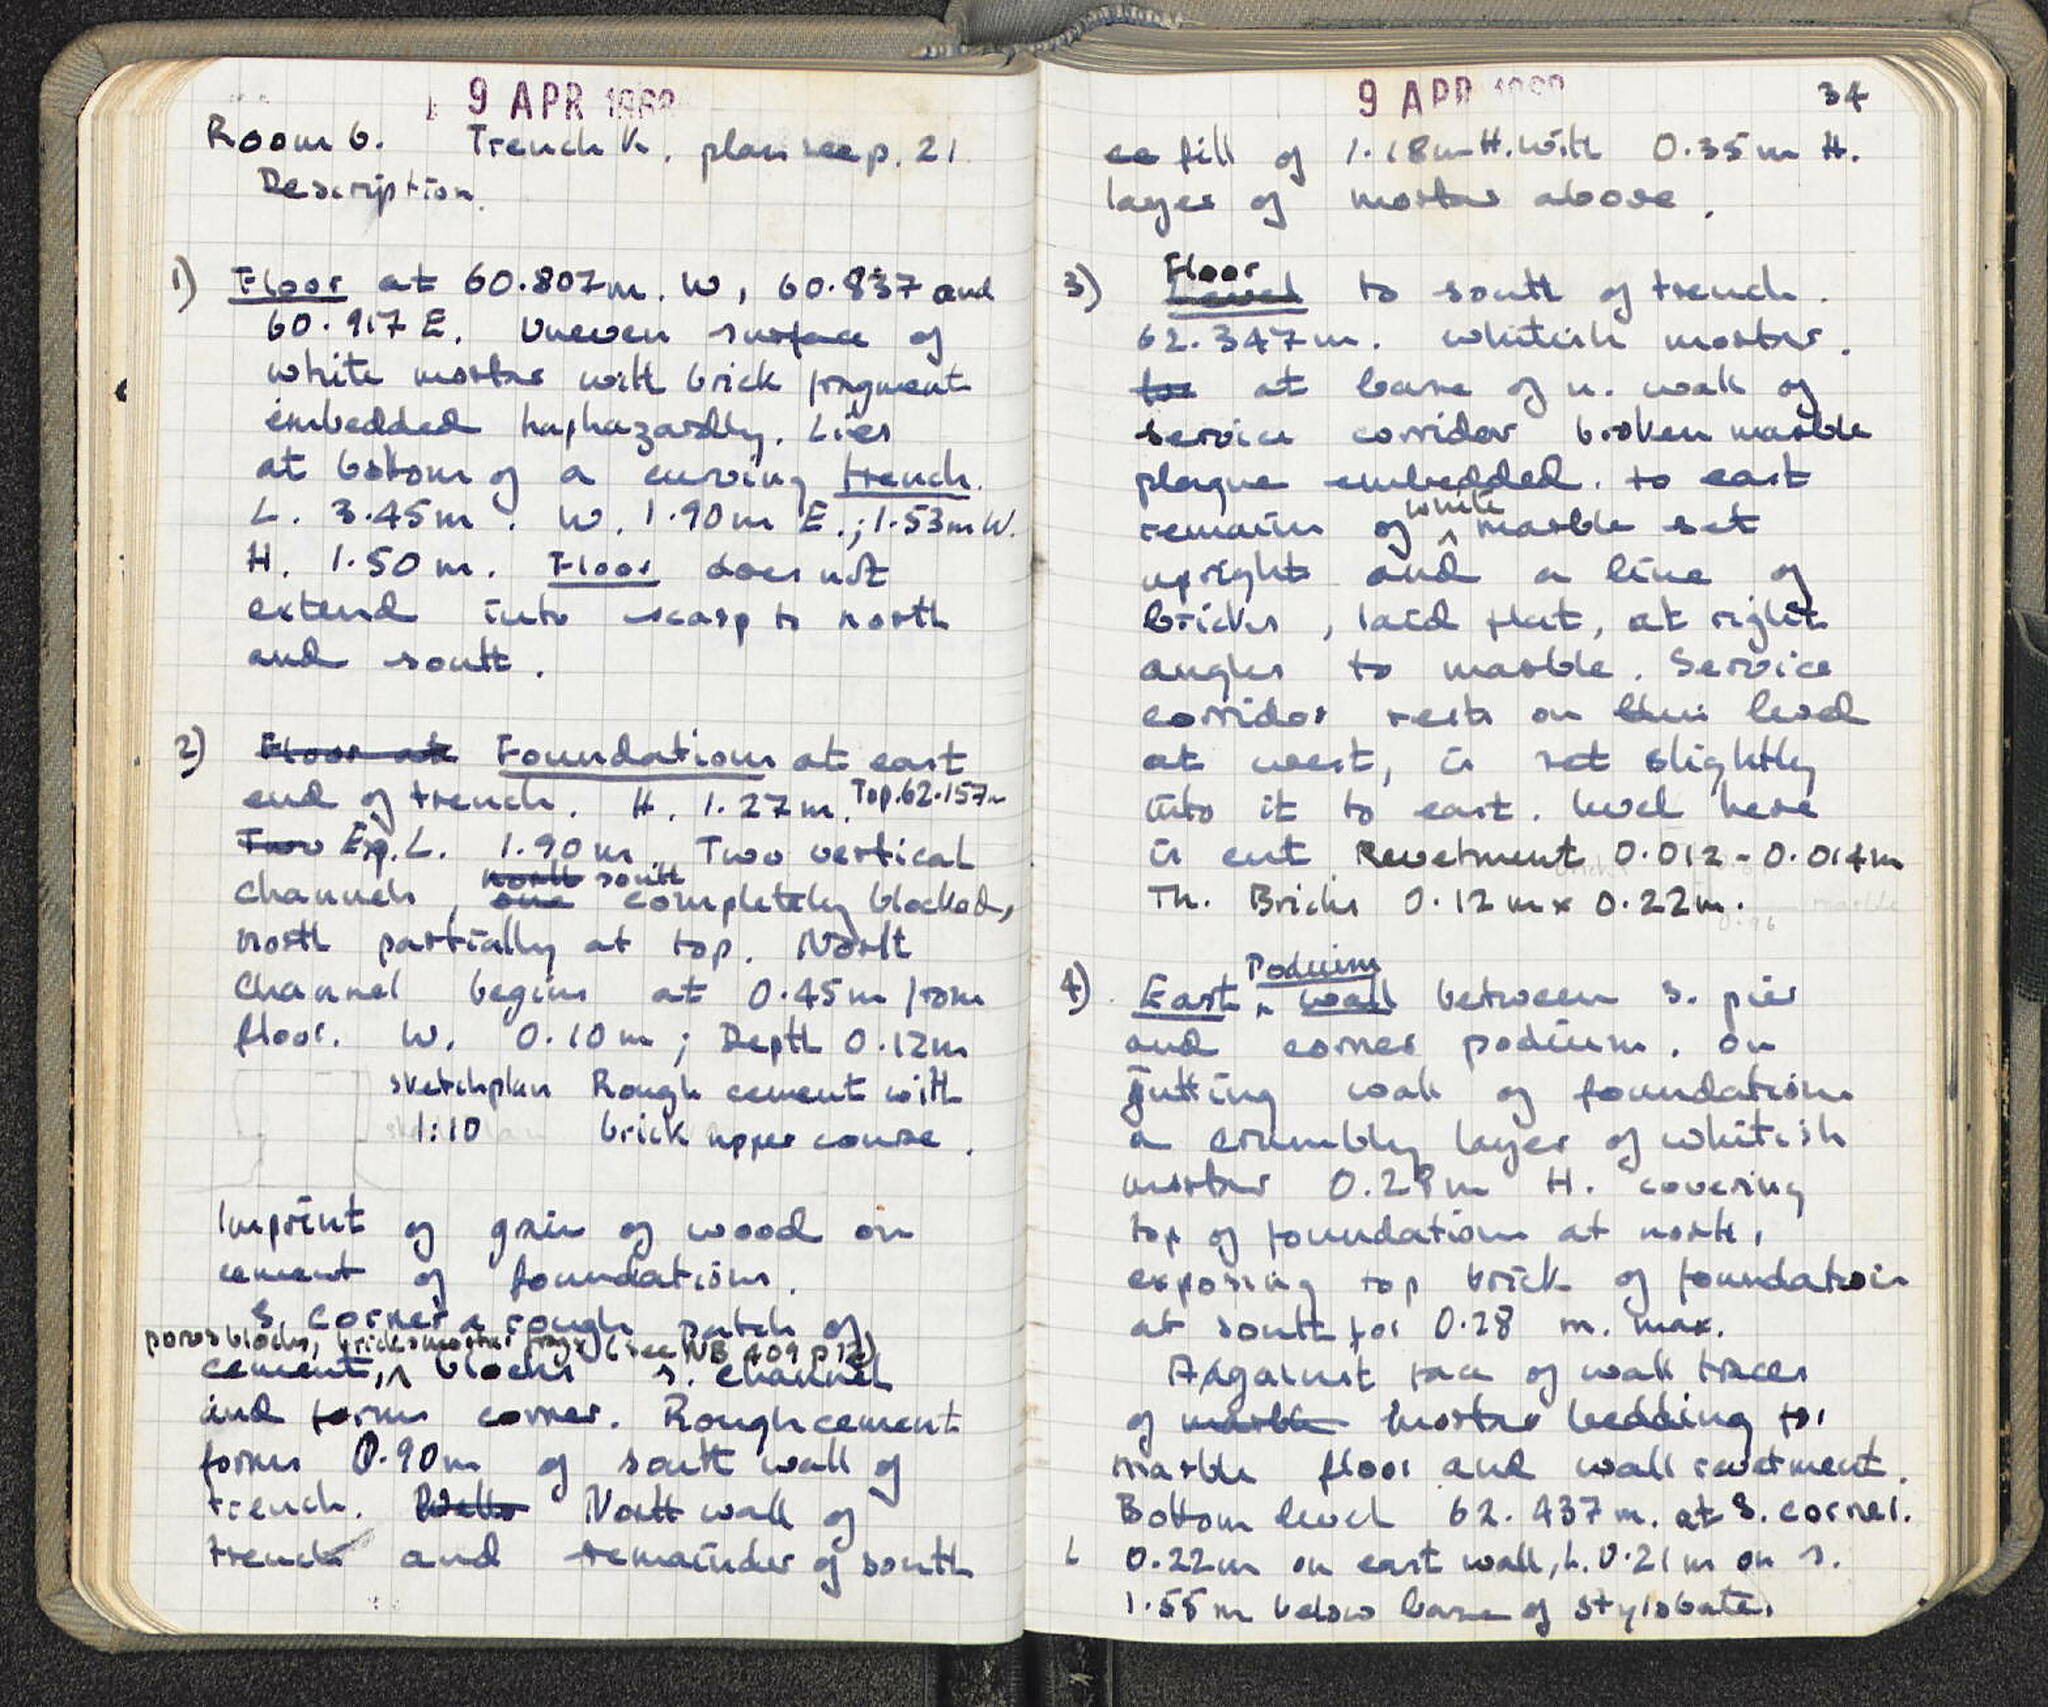 9 APR 1968
Room 6. Trench K. plan see p. 21
Description.
1) Floor at 60.807m. W, 60.837 and
60.917 E. Uneven surface of
white mortar with brick fragment
embedded haphazardly. Lies
at bottom of a curving trench.
L. 3.45m. W. 1.90m E.; 1.53m W.
H. 1.50m. Floor does not
extend into scarp to north
and south.
2) Floor at Foundations at east
end of trench. H. 1.27m. Top. 62.157m
Two Exp. L. 1.90m. Two vertical
north south
channels, one completely blocked,
north partially at top. North
channel begins at 0.45m from
floor. W. 0.10m; Depth 0.12m
sketchplan Rough cement with
1:10 brick upper course.
Imprint of grain of wood on
cement of foundations.
S. corner a rough patch of
poros blocks, bricks mortar frags (see NB 409 p
cement, ^ blocks s. channel
and forms corner. Rough cement
forms 0.90m of south wall of
trench. Walls North wall of
trench and remainder of south
9 APR
34
ce fill of 1.18m H. with 0.35m H.
layer of mortar above.
Floor
3) Level to south of trench.
62.347m. whitish mortar.
at base of n. wall of
service corridor broken marble
plaque embedded. to east
white
remains of ^ marble set
upright and a line of
bricks, laid flat, at right
angles to marble. Service
corridor rests on this level
at west, is set slightly
into it to east. level here
is cut Revetment 0.012 - 0.014m
Th. Bricks 0.12m x 0.22m.
Podium
4) East ^ wall between s. pier
and corner podium. On
jutting wall of foundations
a crumbly layer of whitish
mortar 0.29m H. covering
top of foundations at north,
exposing top brick of foundation
at south for 0.28 m. max.
Against face of wall traces
of marble mortar bedding for
marble floor and wall revetment.
Bottom level 62.437m. at S. corner.
L 0.22m on east wall, L. 0.21m on s.
1.55m below base of stylobate.